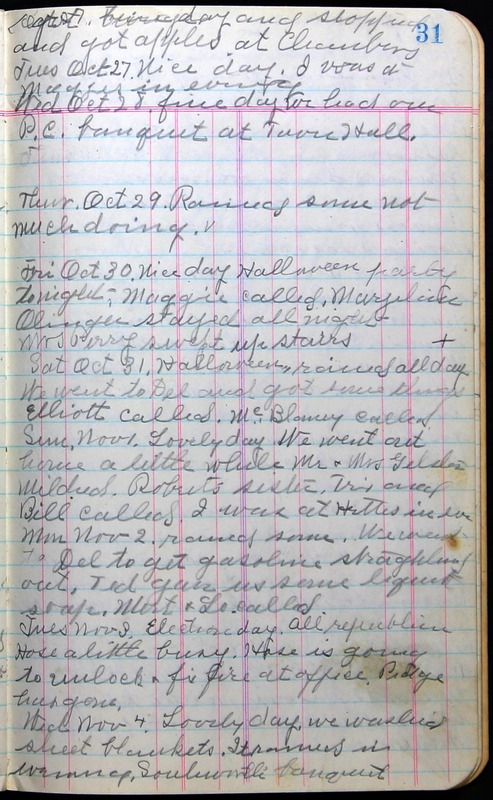 31
day and stopping
and got apples at Chambers
Tues Oct 27. Nice day. I was a
Maggies in evening
Wed Oct 28 fine day for had our
P.C. banquet at Town Hall.
Thur. Oct 29. Rained some not
much doing.
Fri Oct 30, Nice day Halloween party
tonight. Maggie called, Marjelien
Olinger stayed all night
Mrs Perry swept up stairs +
Sat Oct 31, Halloween, rained all day
We went to Del and got some things
Elliott called. Mc Blaney called
Sun, Nov 1. Lovely day We went out
home a little while Mr & Mrs
Mildred. Roberts sister. Iris and
Bill called. I was at Hatties in eve
Mon Nov 2. rained some. We went
To Del to get gasoline straightened
out. Ted gave us some liquid
soap. Mort & Lo called
Tues Nov 3. Election day. all republican
Hose a little busy. Hose is going
to unlock & fix fire at office.
has gone.
Wed Nov 4. Lovely day, we washed
sheet blankets. It rained in
evening. Southworth banquet